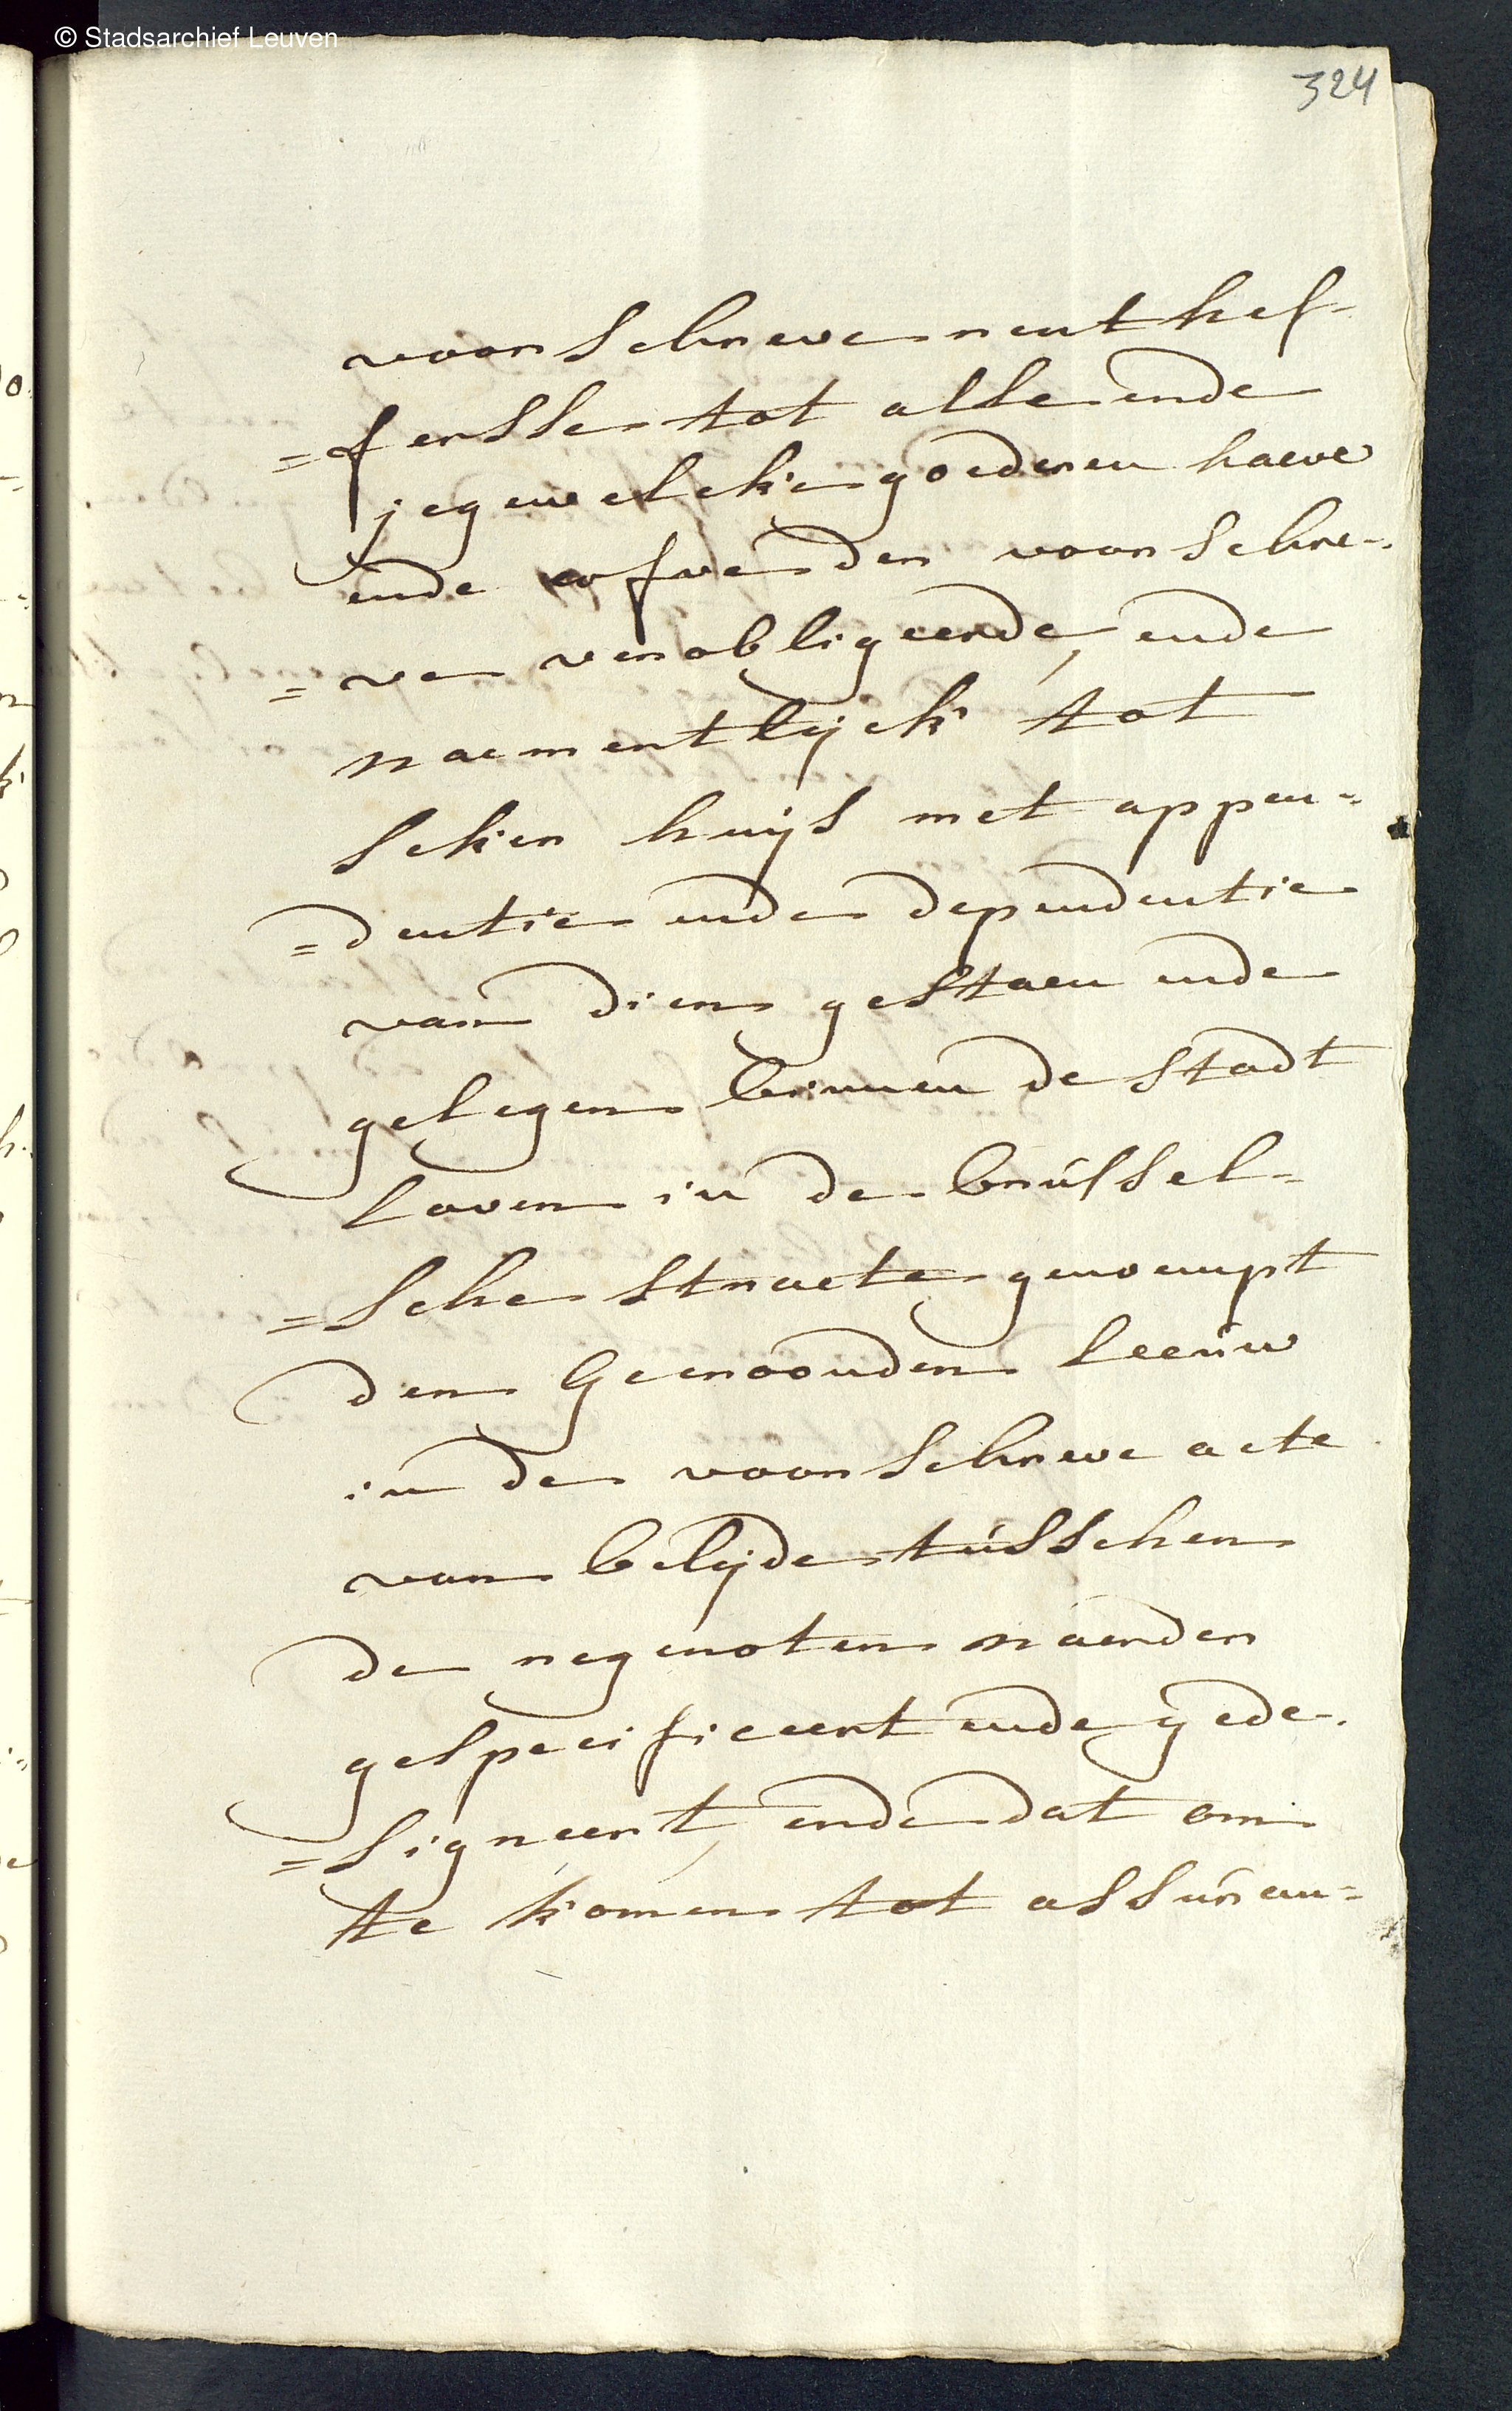 © Stadsarchief Leuven
324
voorschreve rent hef-
=fersse tot alle ende
jegewelcke goederen haeve
ende erfve der voorschre-
=ve verobligeerde, ende
naementlijck tot
seker huijs met appen-
=dentie ende dependentie
van dien gestaen ende
gelegen binnen de stadt
Loven in de brússel-
=sche straete genoempt
den Gecroonden leeúw
in de voorschreve acte
van belijde tússchen
de regenoten naerder
gespecificeert ende gede-
=signeert, ende dat om
te komen tot assúran=